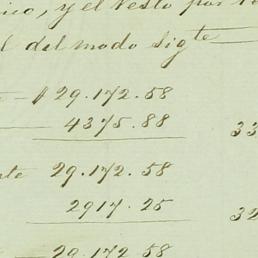 y el resto por
del modo sigte
$ 29.172.58
4375.88
33
29.172.58
2917.25
32
29.172.58